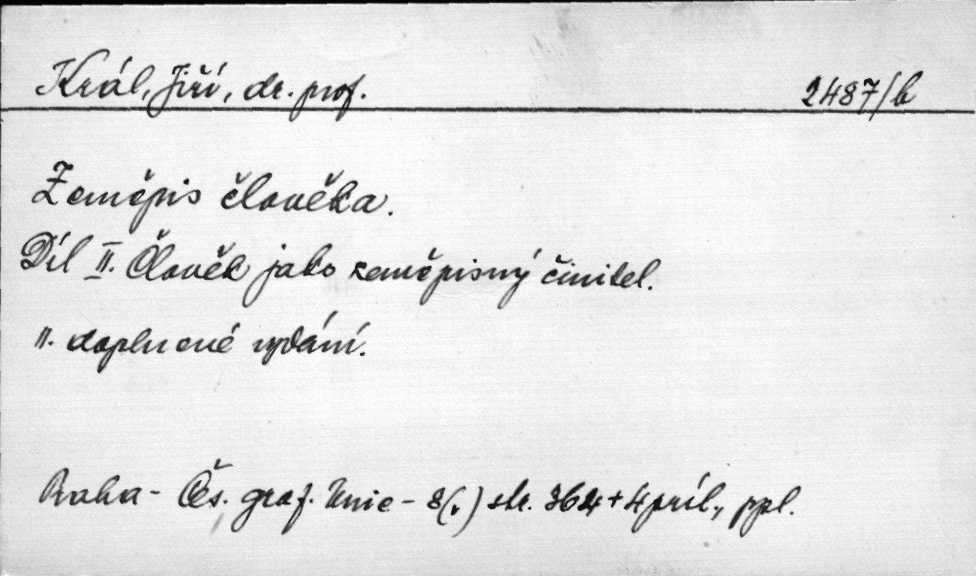 Král, Jiří, dr. prof. 2487/b
Zeměpis člověka.
Díl II. Člověk jako zeměpisný činitel.
II. doplnené vydání.
Praha - Čs. graf. Unie - 8(°) str. 364 + 4 príl., ppl.